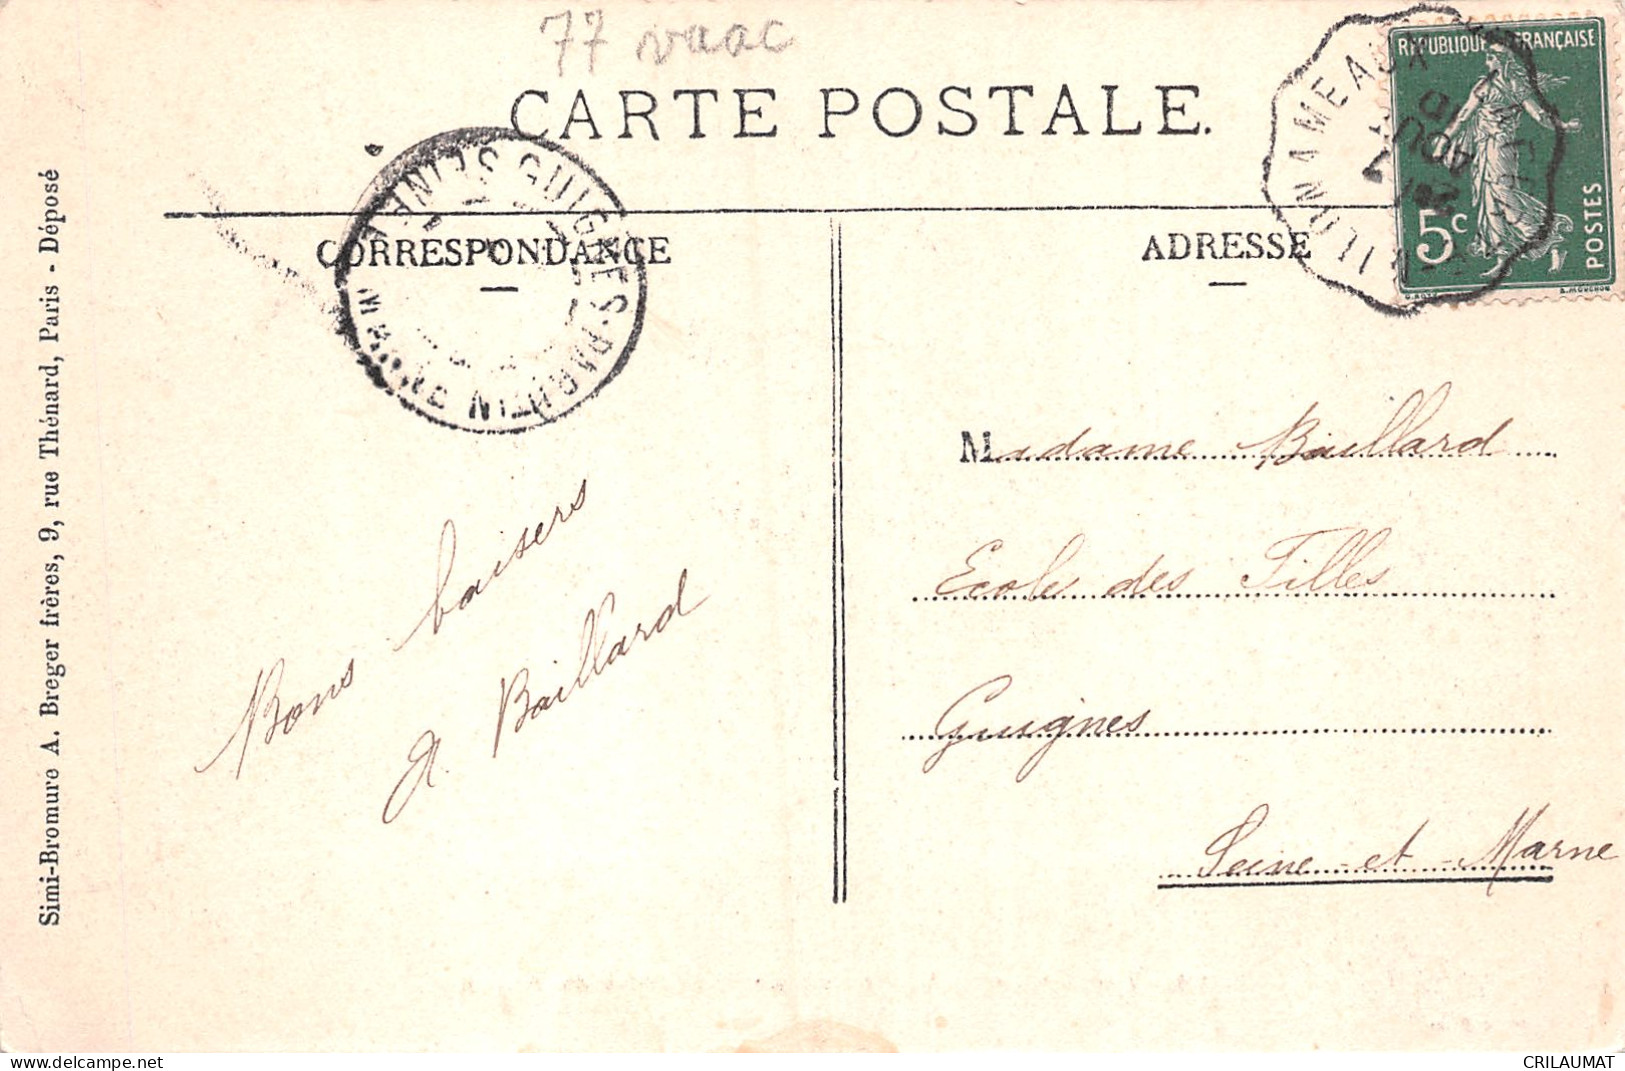 77 vaac
CARTE POSTALE.
CORRESPONDANCE
ADRESSE
RÉPUBLIQUE FRANÇAISE
5c
POSTES
GUIGNES-RABUTIN
SEINE
MARNE
A MEAUX
AOU
10
Madame Baillard
Ecole des Filles
Guignes
Seine-et-Marne
Bons baisers
A. Baillard
Simi-Bromure A. Breger frères, 9, rue Thénard, Paris - Déposé
CRILAUMAT